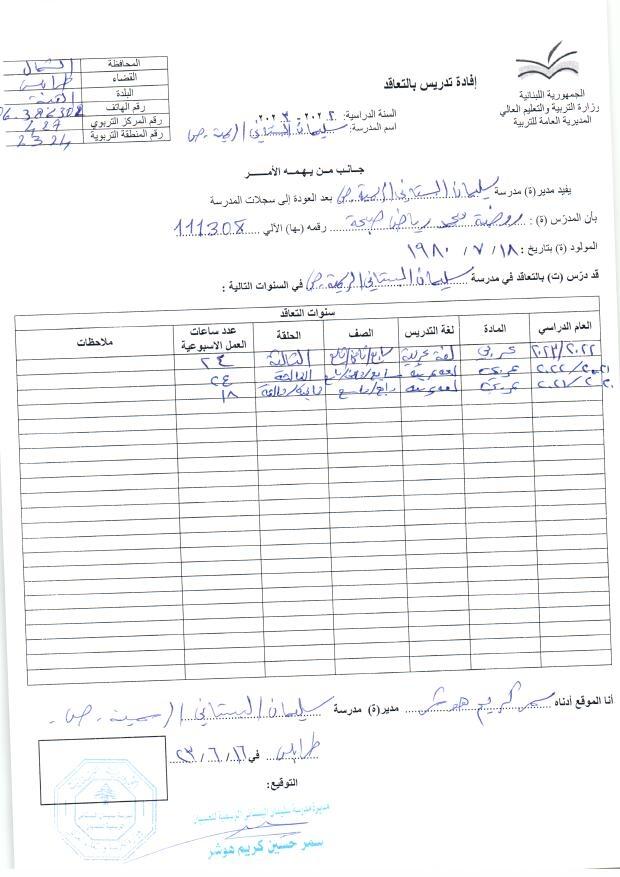 الجمهورية اللبنانية
وزارة التربية والتعليم العالي
المديرية العامة للتربية
إفادة تدريس بالتعاقد
السنة الدراسية: ٢٠٢٢-٢٠٢٣
اسم المدرسة: سليمان البستاني الرسمية.ص
المحافظة الشمال
القضاء طرابلس
البلدة القبة
رقم الهاتف 06.386308
رقم المركز التربوي 427
رقم المنطقة التربوية 2324
جانب من يهمه الأمر
يفيد مدير(ة) مدرسة سليمان البستاني الرسمية ص بعد العودة إلى سجلات المدرسة
بأن المدرّس (ة) : روضة محمد رياض صبحة رقمه (ها) الآلي 111308
المولود (ة) بتاريخ : ١٨ / ٧ / ١٩٨٠
قد درّس (ت) بالتعاقد في مدرسة سليمان البستاني الرسمية.ص في السنوات التالية :
سنوات التعاقد
العام الدراسي المادة لغة التدريس الصف الحلقة عدد ساعات العمل الاسبوعية ملاحظات
٢٠٢٢/٢٠٢٣ عربي لغة عربية سابع/ثامن/تاسع الثالثة ٢٤
٢٠٢١/٢٠٢٢ عربي لغة عربية الثالثة ٢٤
٢٠٢٠/٢٠٢١ عربي لغة عربية ١٨
أنا الموقع أدناه سمر كريم هوشر مدير(ة) مدرسة سليمان البستاني الرسمية.ص.
طرابلس في ١٦ / ٦ / ٢٣
التوقيع:
مديرة مدرسة سليمان البستاني الرسمية للصبيان
سمر حسين كريم هوشر